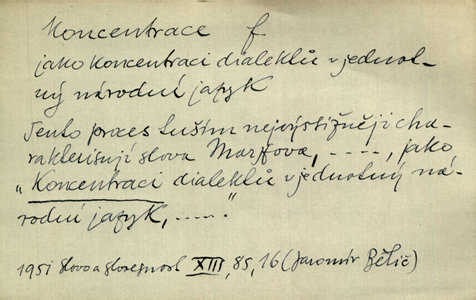 Koncentrace f
jako koncentraci dialektů v jednot-
ný národní jazyk
Tento proces tuším nejvýstižněji cha-
rakterisují slova Marxova, ----, jako
„Koncentraci dialektů v jednotný ná-
rodní jazyk, ----."
1951 Slovo a slovesnost XIII, 85, 16 (Jaromír Bělič)